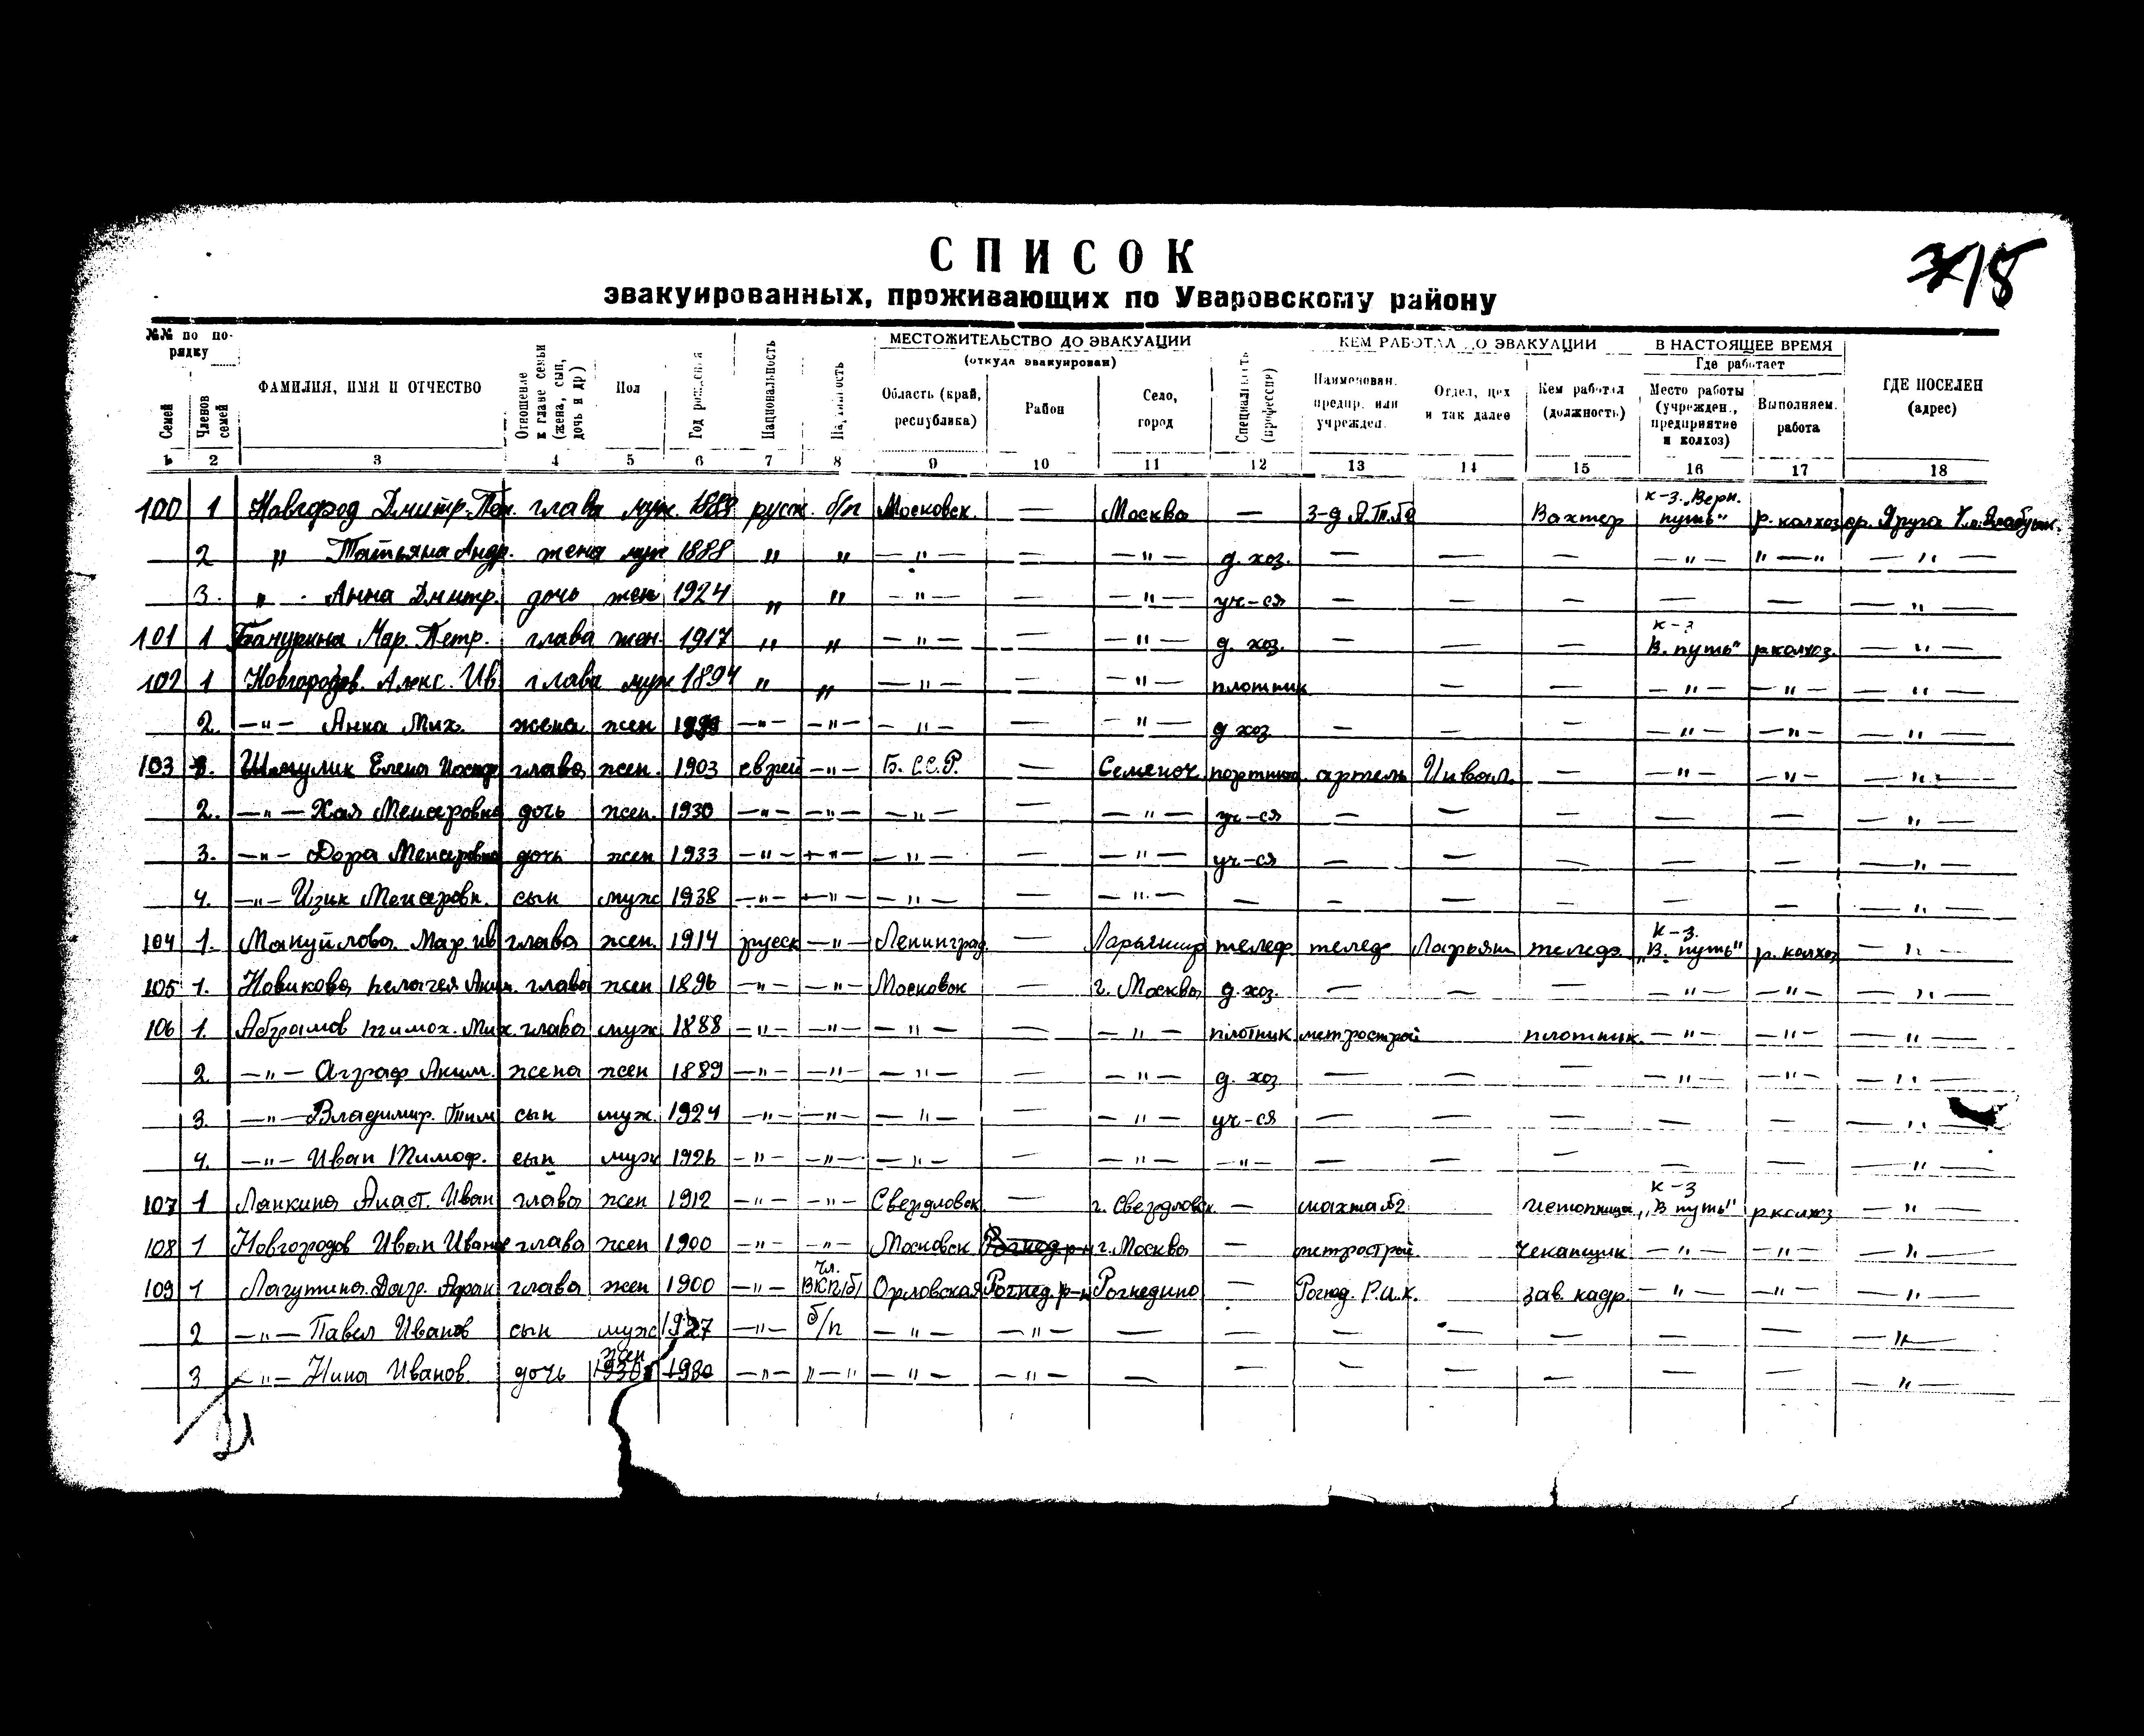 718
СПИСОК
эвакуированных, проживающих по Уваровскому району
№№ по по-
рядку
Семей
Членов семей
ФАМИЛИЯ, ИМЯ И ОТЧЕСТВО
Отношение к главе семьи (жена, сын, дочь и др)
Пол
Год рождения
Национальность
Партийность
МЕСТОЖИТЕЛЬСТВО ДО ЭВАКУАЦИИ
(откуда эвакуирован)
Область (край, республика)
Район
Село, город
Специальность (профессия)
КЕМ РАБОТАЛ ДО ЭВАКУАЦИИ
Наименован. предпр. или учрежден.
Отдел, цех и так далее
Кем работал (должность)
В НАСТОЯЩЕЕ ВРЕМЯ
Где работает
Место работы (учрежден., предприятие и колхоз)
Выполняем. работа
ГДЕ ПОСЕЛЕН (адрес)
1 2 3 4 5 6 7 8 9 10 11 12 13 14 15 16 17 18
100 1 Новгород Дмитр. глава муж. 1888 русск. б/п Московск. — Москва — 3-д Вахтер к-з. „Верн. путь" р. колхоз
2 " Татьяна Андр. жена муж 1888 " " — " — — — " — д. хоз. — — — — " — " — " — " —
3. " Анна Дмитр. дочь жен 1924 " " — " — — — " — уч-ся — — — — — — " —
101 1 Мар. Петр. глава жен. 1917 " " — " — — — " — д. хоз. — — — к-з В. путь" р колхоз. — " —
102 1 Новгородов. Алекс. Ив глава муж 1894 " " — " — — " — плотник — — — " — — " — — " —
2. — " — Анна Мих. жена жен — " — — " — — " — — — " — д хоз — — — — " — — " — — " —
103 Елена глава жен. 1903 еврей — " — Б. С.С.Р. — артель Инвал. — — " — — " — — " —
2. — " — Хая дочь жен. 1930 — " — — " — — " — — — " — уч-ся — — — — — — " —
3. — " — Дора дочь жен 1933 — " — — " — — " — — — " — уч-ся — — — — — — " —
4. — " — Изик сын муж 1938 — " — — " — — " — — — " — — — — — — — — " —
104 1. Мануйлова. Мар. ив глава жен. 1914 русск — " — Ленинград. — телеф. телеф телеф. к-з. „В. путь" р. колхоз — " —
105 1. Новикова Пелагея Аким. глава жен 1896 — " — — " — Московск — г. Москва д. хоз. — — — — " — — " — — " —
106 1. Абрамов Тимох. Мих. глава муж 1888 — " — — " — — " — — — " — плотник метрострой плотник. — " — — " — — " —
2 — " — Аграф Аким. жена жен 1889 — " — — " — — " — — — " — д. хоз — — — — " — — " — — " —
3. — " — Владимир. Тим сын муж. 1924 — " — — " — — " — — — " — уч-ся — — — — — — " —
4. — " — Иван Тимоф. сын муж 1926 — " — — " — — " — — — " — — " — — — — — — — " —
107 1 Лапкина Анаст. Иван глава жен 1912 — " — — " — Свердловск. — г. Свердловск. — шахта №2 к-з „В путь" р колхоз — " —
108 1 Новгородов Иван Иванов глава жен 1900 — " — — " — Московск Рогнед р-н г. Москва — метрострой. чеканщик — " — — " — — " —
109 1 Лагутина. глава жен 1900 — " — чл. ВКП/б/ Орловская Рогнед. р-н Рогнедино — Рогнед. Р.И.К. зав. кадр. — " — — " — — " —
2 — " — Павел Иванов сын муж 1927 — " — б/п — " — — " — — — — — — — — — " —
3 — " — Нина Иванов. дочь жен 1930 1930 — " — " — " — " — — " — — — — — — — — — " —
21